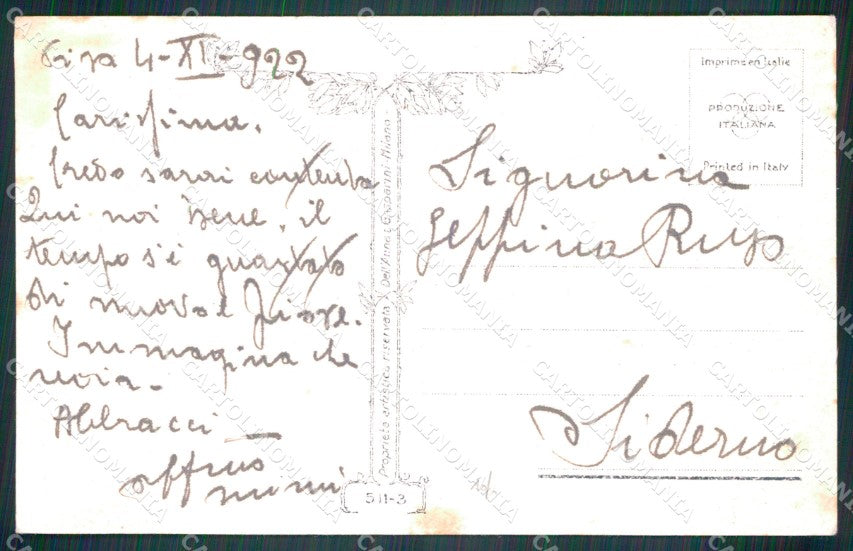 4-XI-922
Carissima.
Credo sarai contenta
Qui noi bene, il
tempo s'è guastato
di nuovo e piove.
Immagina che
noia.
Abbracci
affmo
mimì
Imprimé en Italie
PRODUZIONE
ITALIANA
Printed in Italy
Signorina
Geppina
Siderno
Proprietà artistica riservata Dell'Anna & Gasparini Milano
511-3
CARTOLINOMANIA